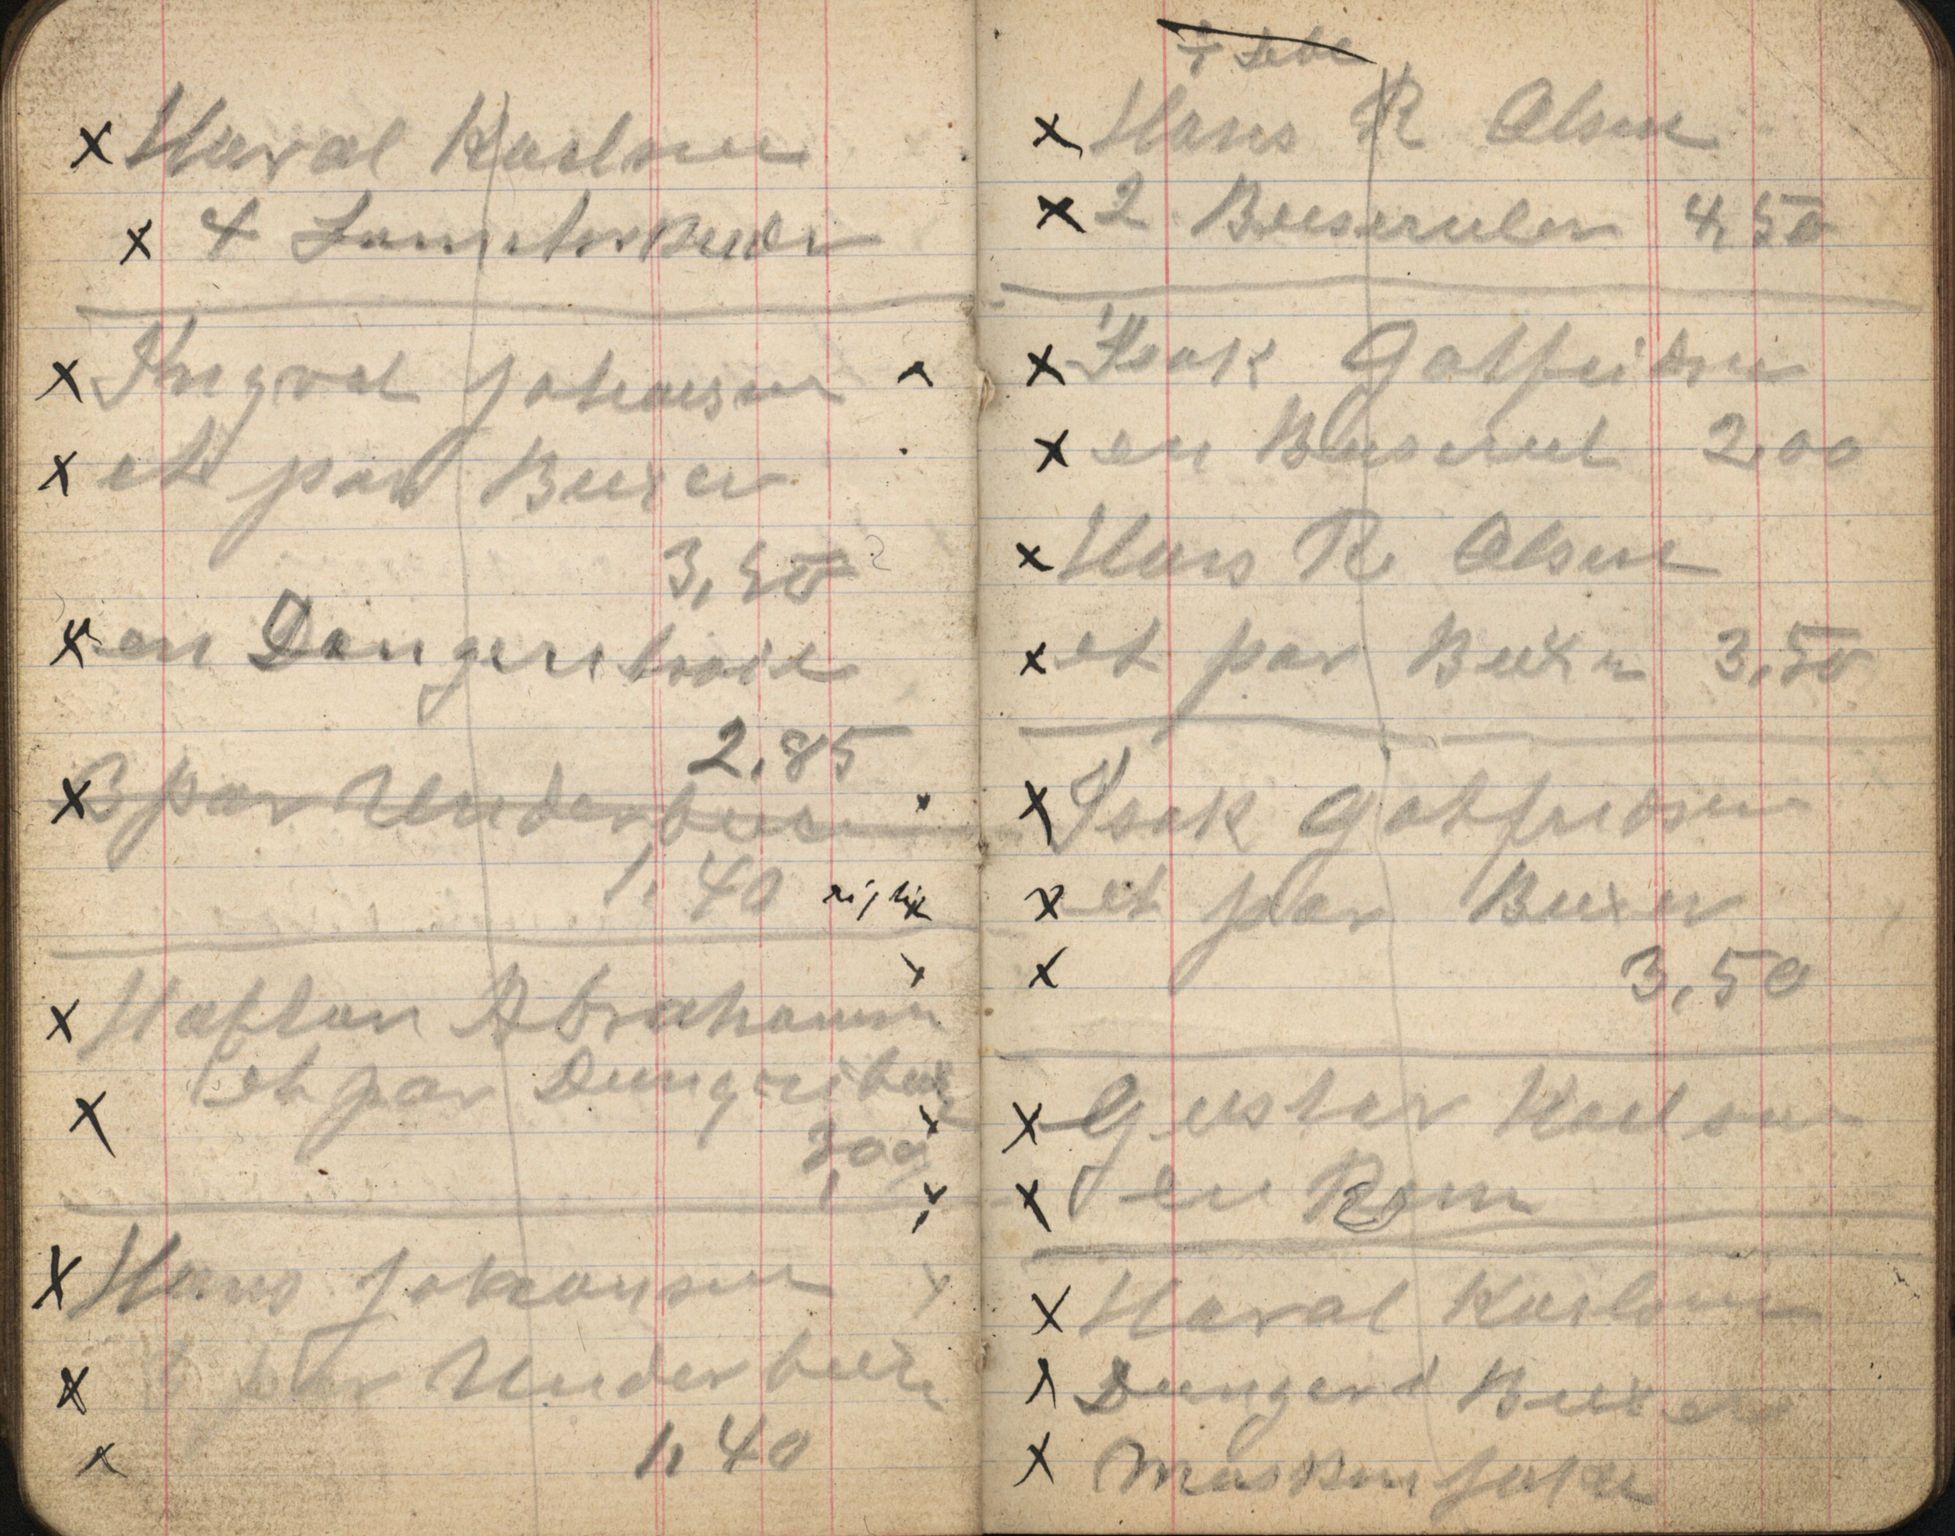 x Haral Karlsen
x 4 Lomtørkuder
x Ingval Johansen
x et par Buxer
3,50
x en Dongeri troie
2,85
x 3 par Underbuser
1,40 rigtig
x Haftan Abrahamsen
x et par Dungeribux
3,00
x Hans Johansen
x par Underbuxe
x 1,40
x Hans R Olsen
x 2 Buseruler 4,50
x Isak Gotfridsen
x en Buserul 2,00
x Hans R Olsen
x et par Buxer 3,50
x Isak Gotfridsen
x et par Buxer
x 3,50
x Gustav Karlsen
x en Rom
x Haral Karlsen
x Dungeri Buxer
x Maskin jakke